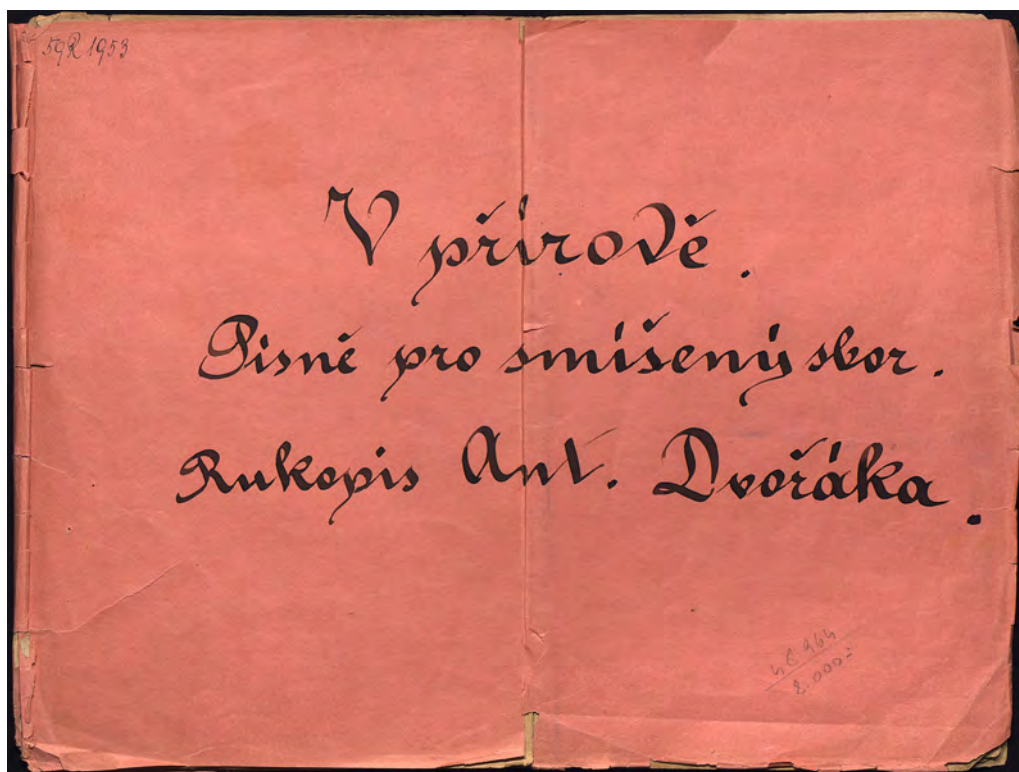 59R 1953
V přírodě.
Písně pro smíšený sbor.
Rukopis Ant. Dvořáka.